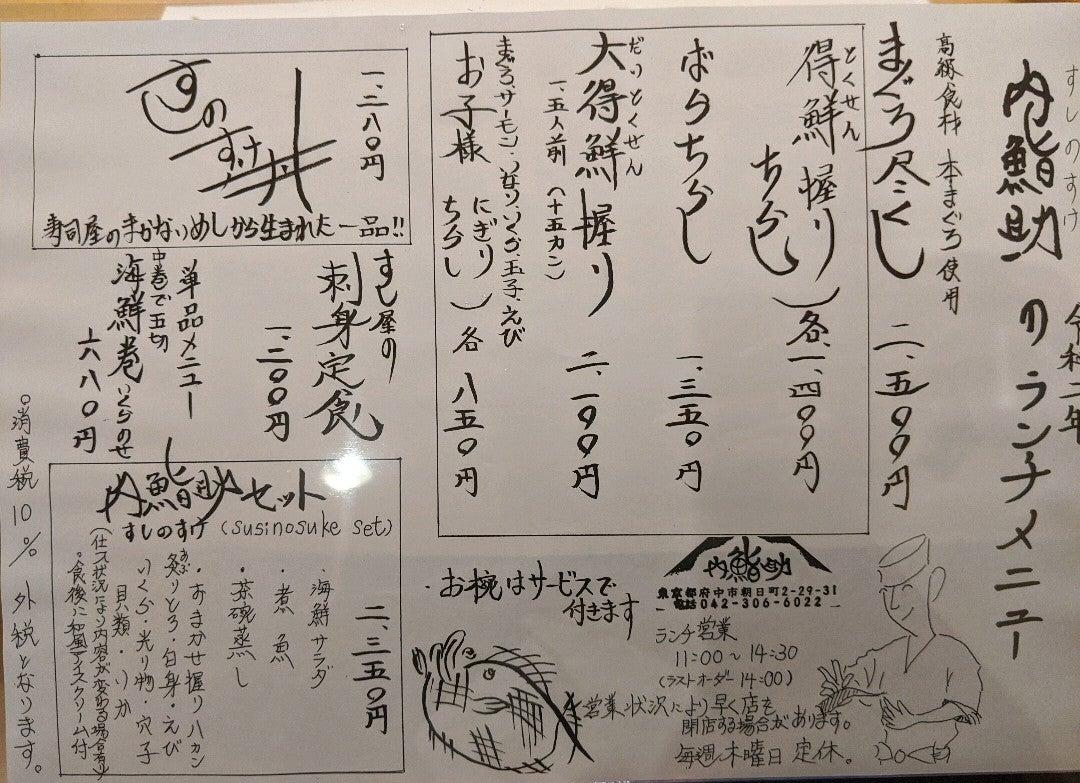 すしのすけ
内鮨助のランチメニュー
令和二年
高級食材 本まぐろ使用
まぐろ尽くし 二、五〇〇円
とくせん
得鮮 握り
ちらし 各、一、四〇〇円
ばらちらし 一、三五〇円
だいとくせん
大得鮮握り 二、一〇〇円
一、五人前(十五カン)
まぐろ、サーモン、いなり、いくら、玉子、えび
お子様 にぎり
ちらし 各 八五〇円
すしのすけ丼
一、二八〇円
寿司屋のまかないめしから生まれた一品!!
すし屋の
刺身定食
一、二〇〇円
単品メニュー
中巻で五切
海鮮巻 いくらのせ
六八〇円
内鮨助セット
すしのすけ (susinosuke set)
二、三五〇円
・海鮮サラダ
・煮魚
・茶碗蒸し
・おまかせ握り八カン
あぶ
炙りとろ・白身・えび
いくら・光り物・穴子
貝類・いか
(仕入状況により内容が変わる場合有り)
・食後に和風アイスクリーム付
○消費税10%外税となります。
・お椀はサービスで
付きます
内鮨助
東京都府中市朝日町2-29-31
電話042-306-6022
ランチ営業
11:00~14:30
(ラストオーダー14:00)
営業状況により早く店を
閉店する場合があります。
毎週木曜日 定休。